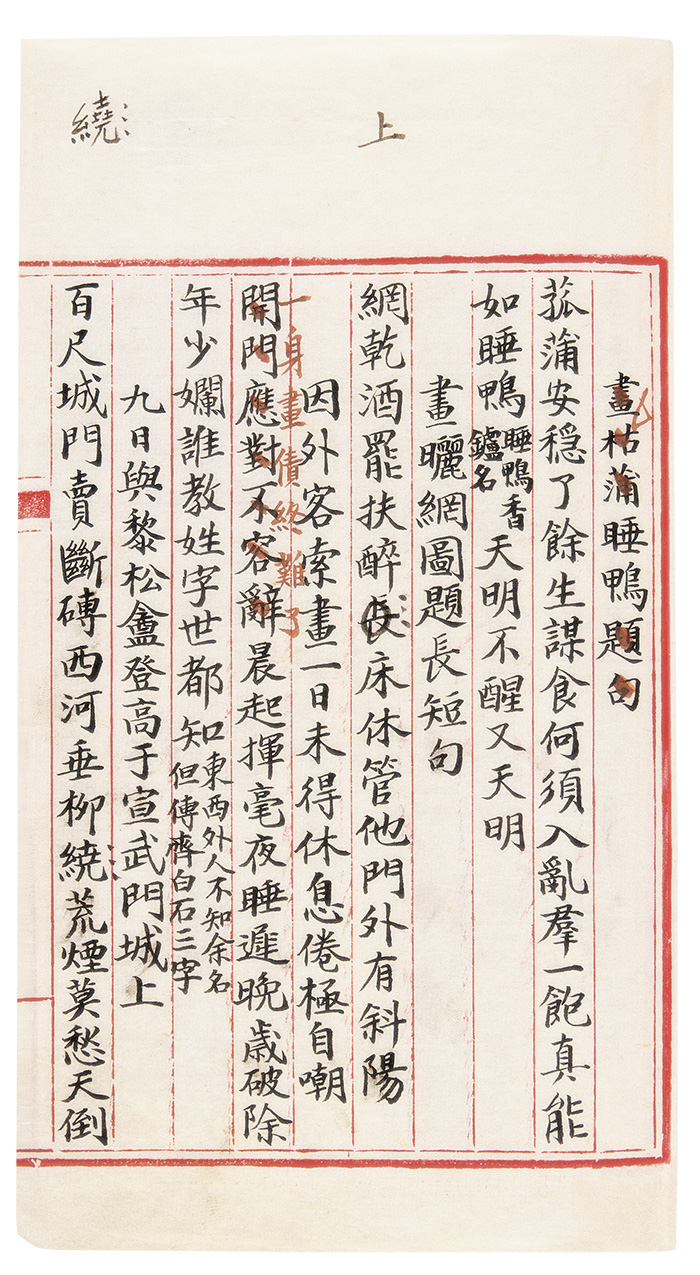 上
繞
畫枯蒲睡鴨題句
菰蒲安穩了餘生謀食何須入亂羣一飽真能
如睡鴨睡鴨香鑪名天明不醒又天明
畫曬網圖題長短句
網乾酒罷扶醉床休管他門外有斜陽
因外客索畫一日未得休息倦極自嘲
一身畫債終難了
開門應對不容辭晨起揮毫夜睡遲晚歲破除
年少嬾誰教姓字世都知東西外人不知余名但傳齊白石三字
九日與黎松盦登高于宣武門城上
百尺城門賣斷磚西河垂柳繞荒煙莫愁天倒